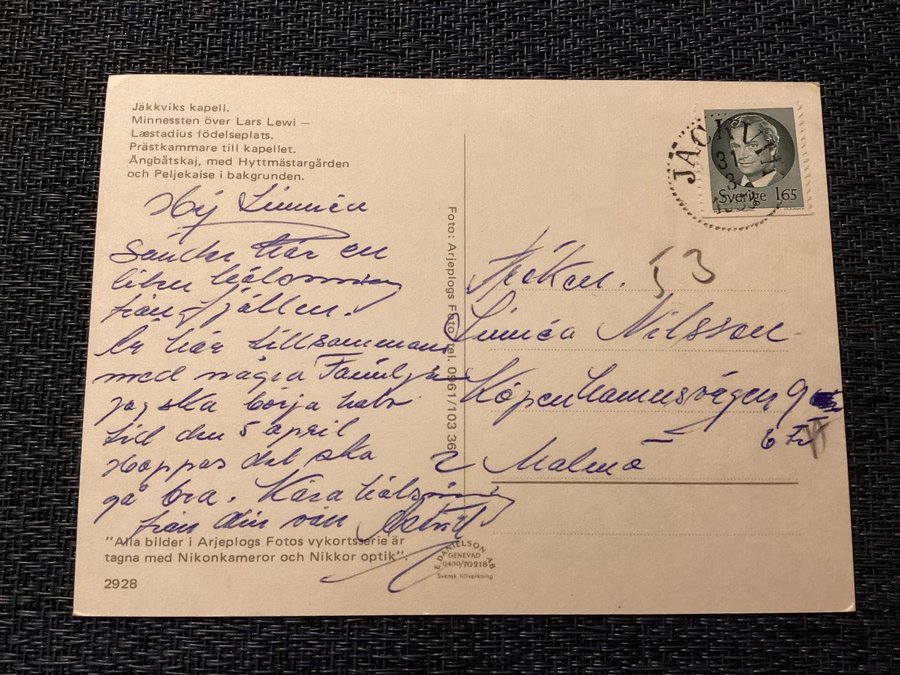 Jäkkviks kapell.
Minnessten över Lars Lewi –
Læstadius födelseplats.
Prästkammare till kapellet.
Ångbåtskaj, med Hyttmästargården
och Peljekaise i bakgrunden.
Hej Linnéa
Sänder här en
liten hälsning
från fjällen.
Är här tillsammans
med några
jag ska börja
till den 5 april
Hoppas det ska
gå bra. Kära hälsning
från din vän Astrid
"Alla bilder i Arjeplogs Fotos vykortsserie är
tagna med Nikonkameror och Nikkor optik".
2928
Foto: Arjeplogs Foto tel. 0961/103 36
E. DANIELSON AB
GENEVAD
0430/70218
Svensk tillverkning
JÄCKVIK
31
3
Sverige 165
53
Fröken.
Linnéa Nilsson
Köpenhamnsvägen 9
6
Malmö